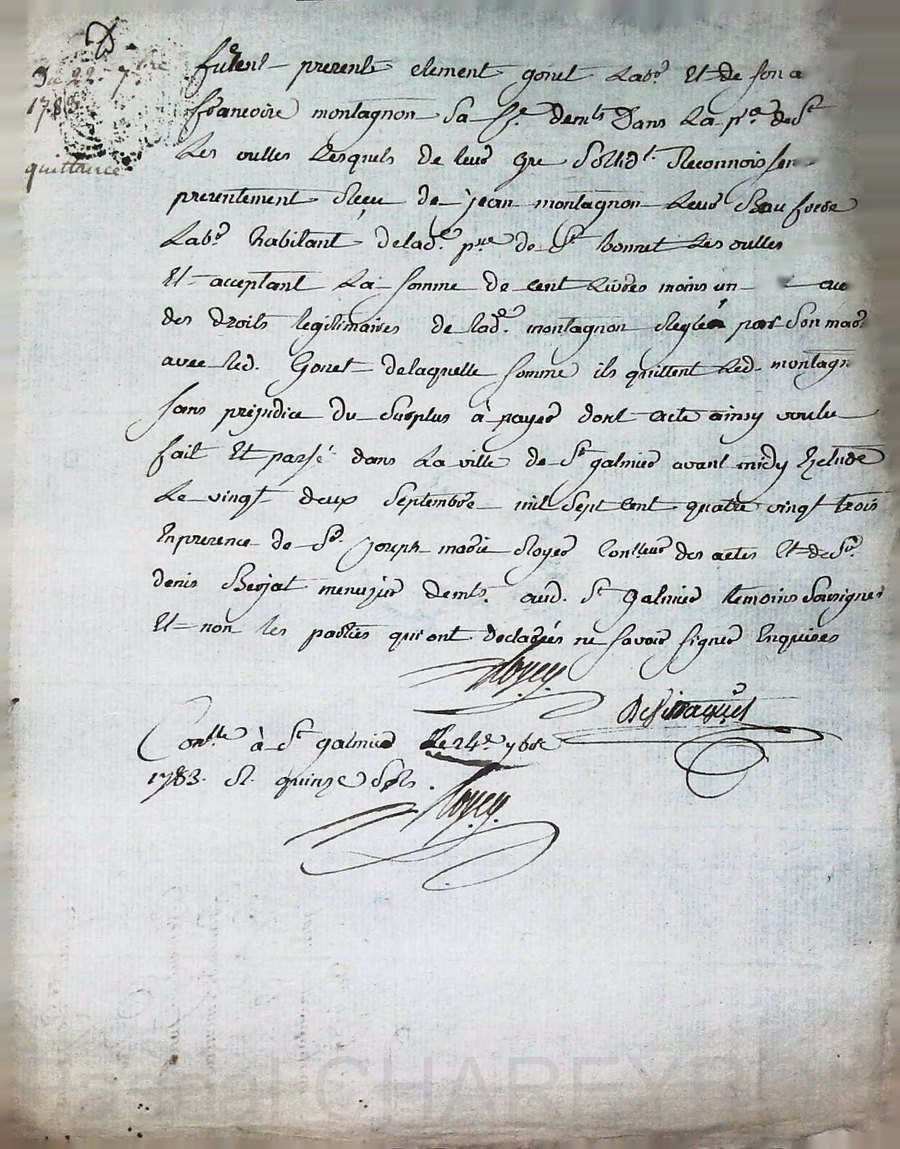 Du 22 7bre
1783
quittance
furent present clement gonet Lab.r Et de son a
francoise montagnon Sa f.e dem.ts Dans La p.se de St
Les oulles Lesquels de leur gre Sollid.t Reconnoissen
presentement Reçu de jean montagnon Leur Beau frere
Lab.r habitant delad.e p.sse de St bonnet Les oulles
Et acceptant La somme de cent Livres moins un
des droits legitimaires de lad.e montagnon Reglés par Son mar
avec led. Gonet delaquelle somme ils quittent led. montagn
sans prejudice du Surplus à payer dont acte ainsy voulu
fait Et passé dans La ville de St galmier avant midy
Le vingt deux Septembre mil Sept cent quatre vingt trois
En presence de Sr. Joseph marie Royer Conlleur des actes Et de Sr.
denis Berjat menuzier dem.ts aud. St Galmier temoins Soussignes
Et non les parties qui ont declarées ne Savoir signer Enquises
Royer
Con.lle à St galmier Le 24e 7bre
1783. R. quinze Sols.
Royer
CHAREYR